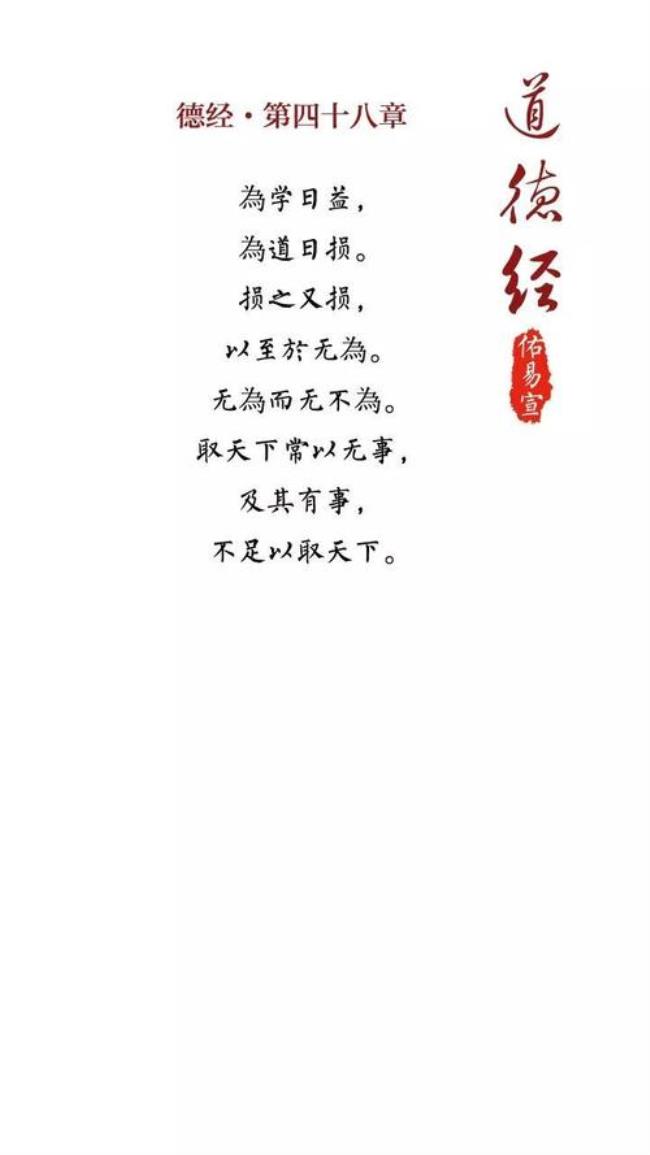 道德经
佑易宣
德经·第四十八章
為学日益，
為道日损。
损之又损，
以至於无為。
无為而无不為。
取天下常以无事，
及其有事，
不足以取天下。